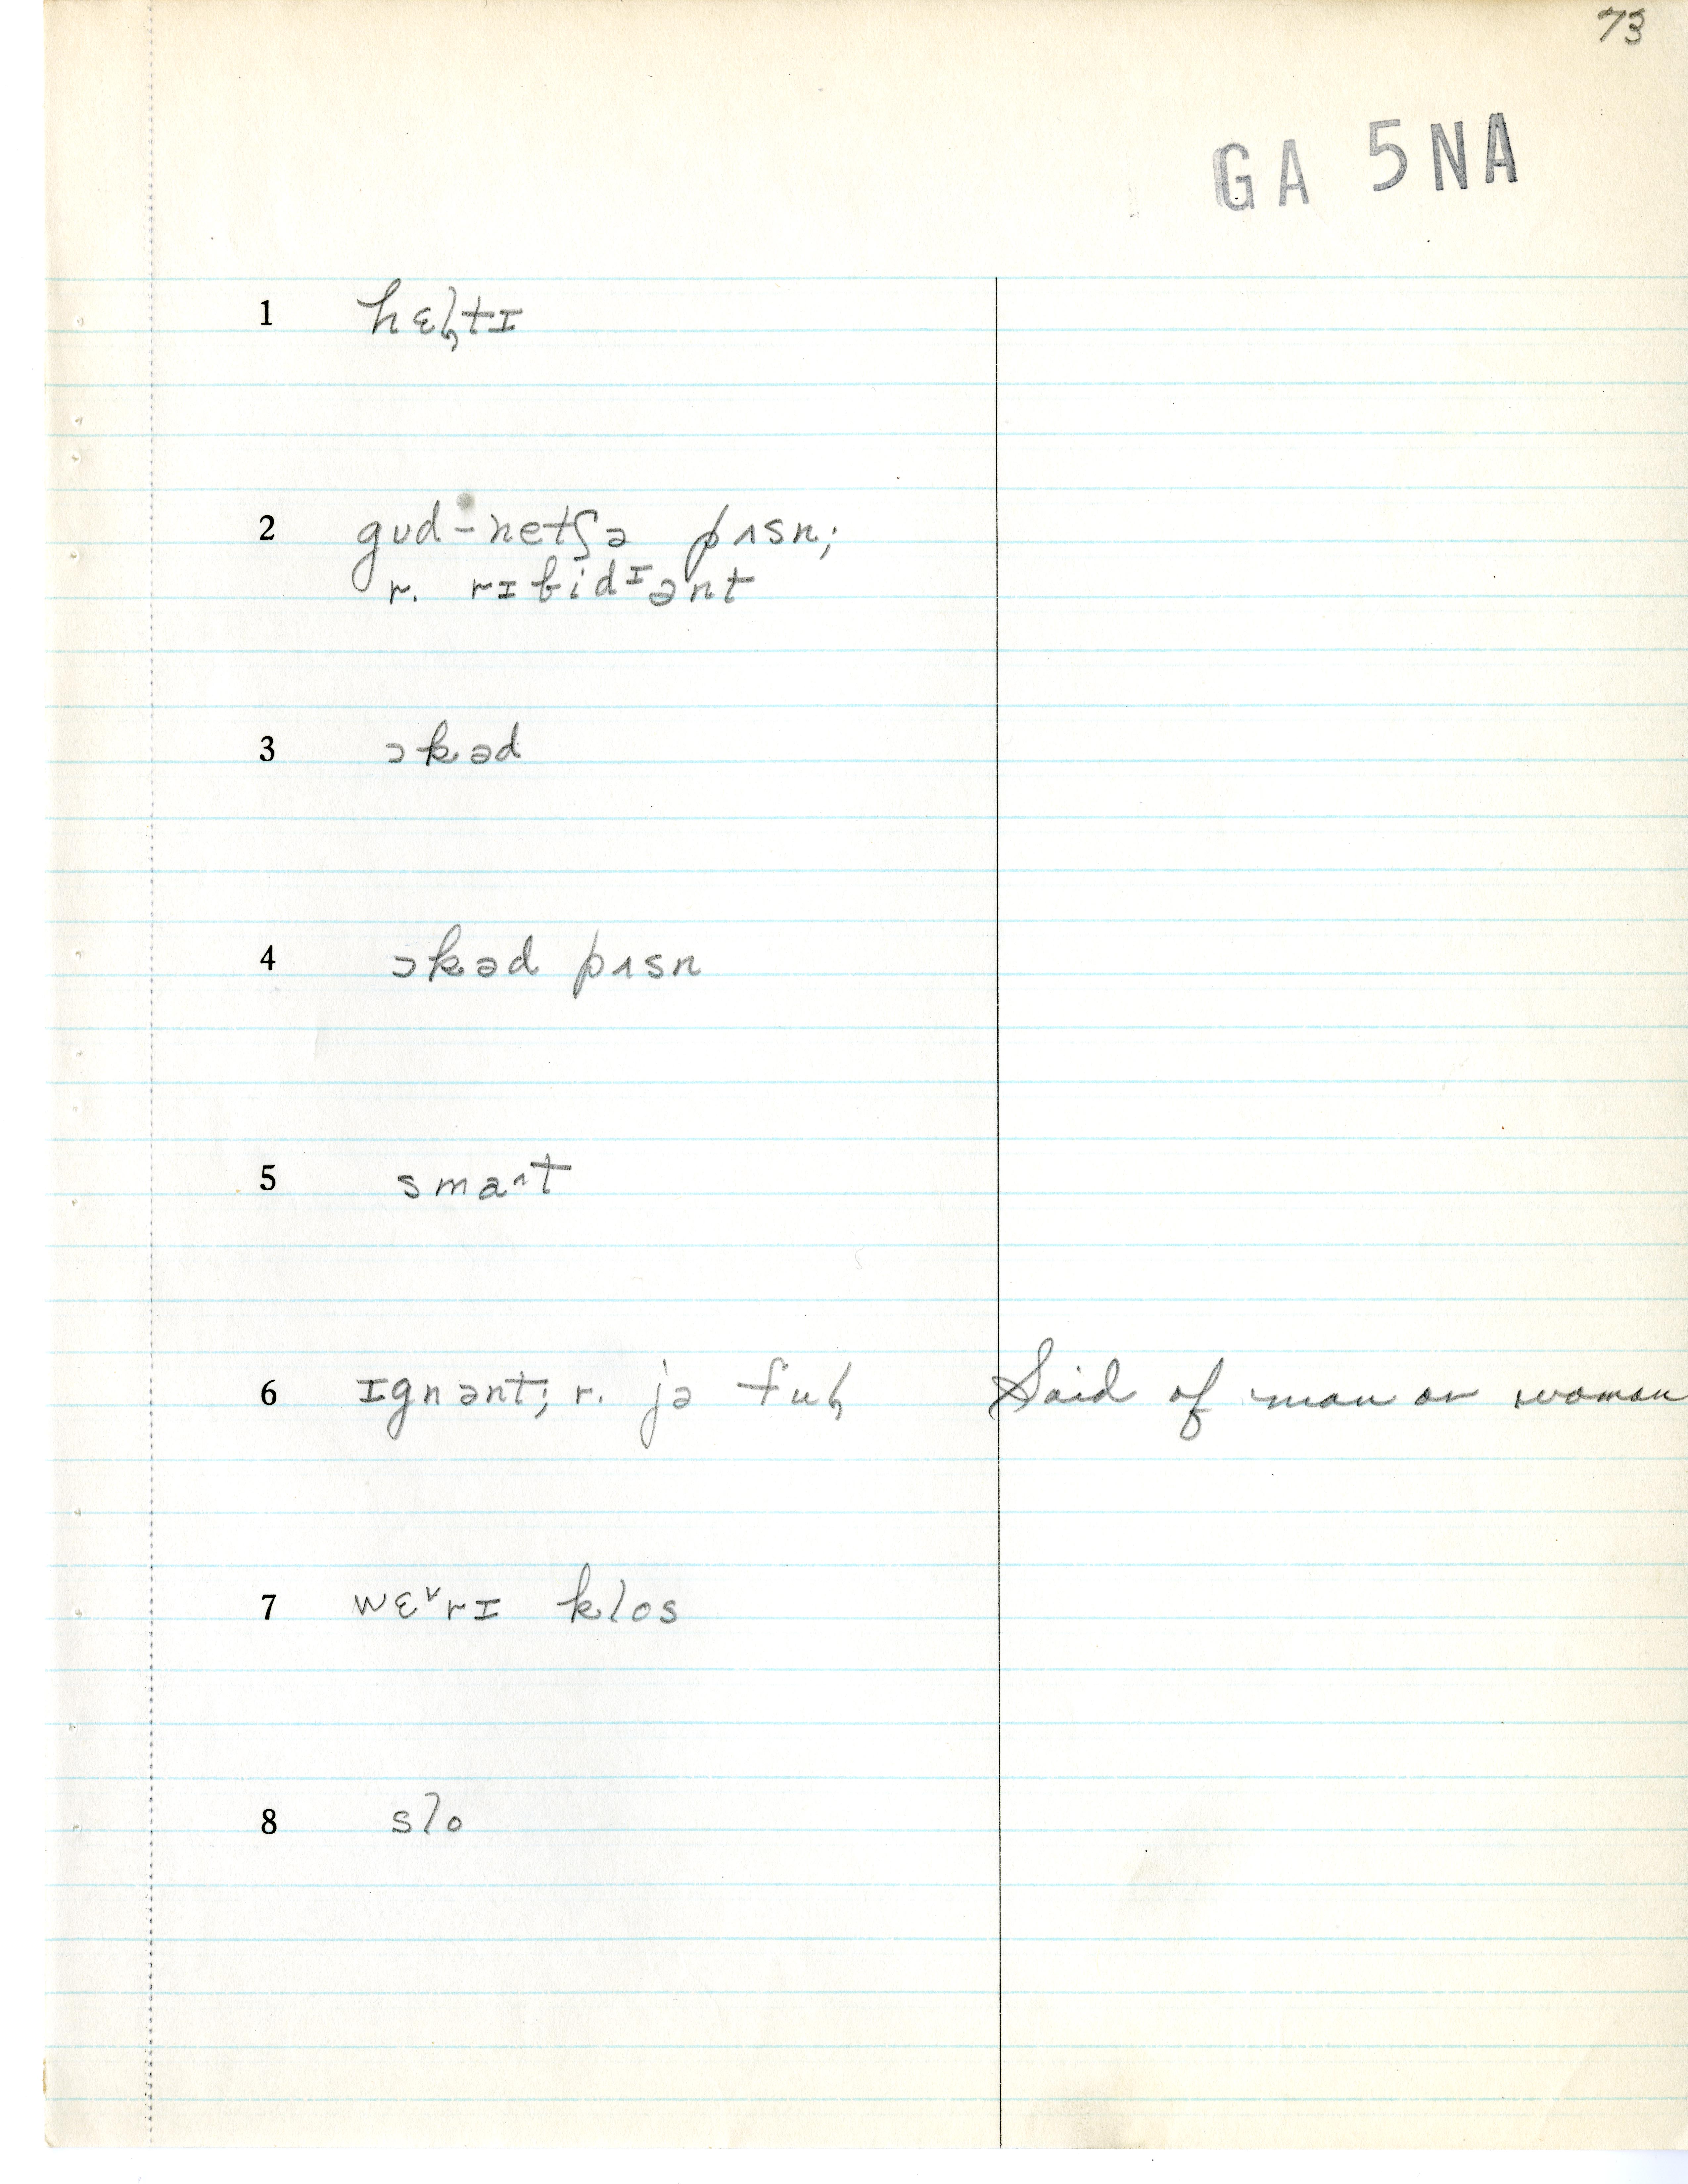 73
GA 5NA
1 hɛl̡tɪ
2 gʊd-netʃə pʌsn;
r. rɪbidᴵənt
3 ɔkəd
4 ɔkəd pʌsn
5 smaˑt
6 ɪgnənt; r. jə ful̡ Said of man or woman
7 wɛ˅rɪ klos
8 slo